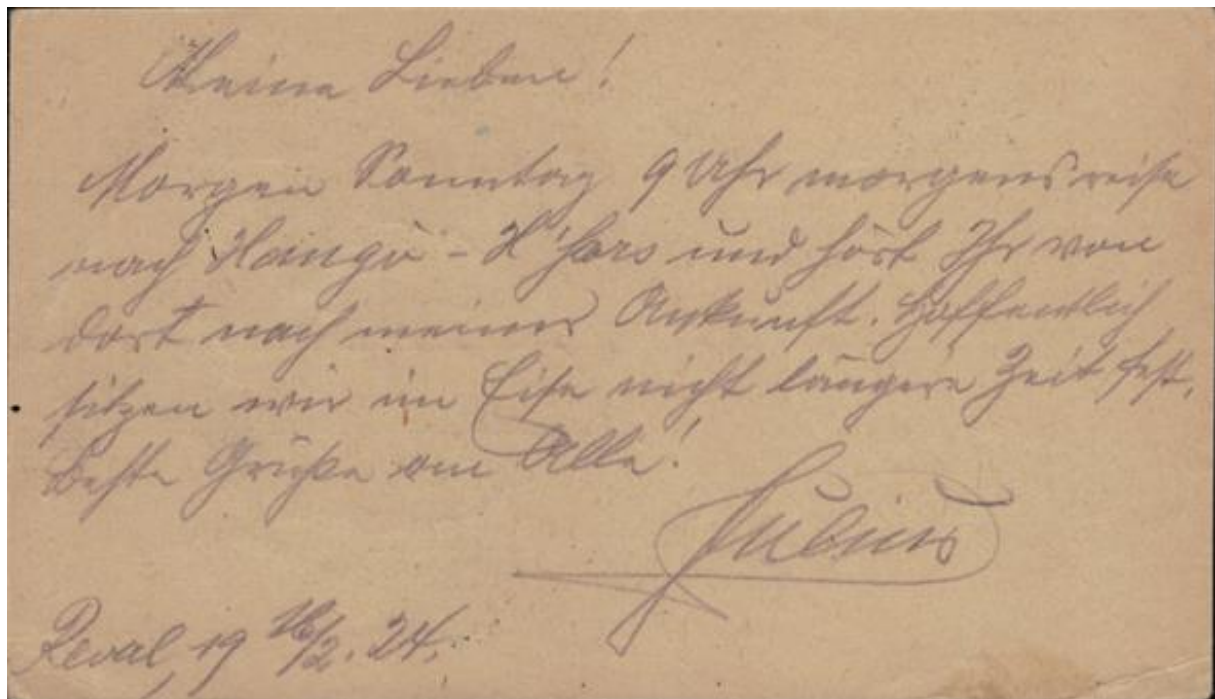 Meine Lieben!
Morgen Sonntag 9 Uhr morgens reise
nach Hangö - H'fors und hört Ihr von
dort nach meiner Ankunft. Hoffentlich
sitzen wir im Eise nicht längere Zeit fest.
Beste Grüße an Alle!
Julius
Reval, 19 16/2. 24.